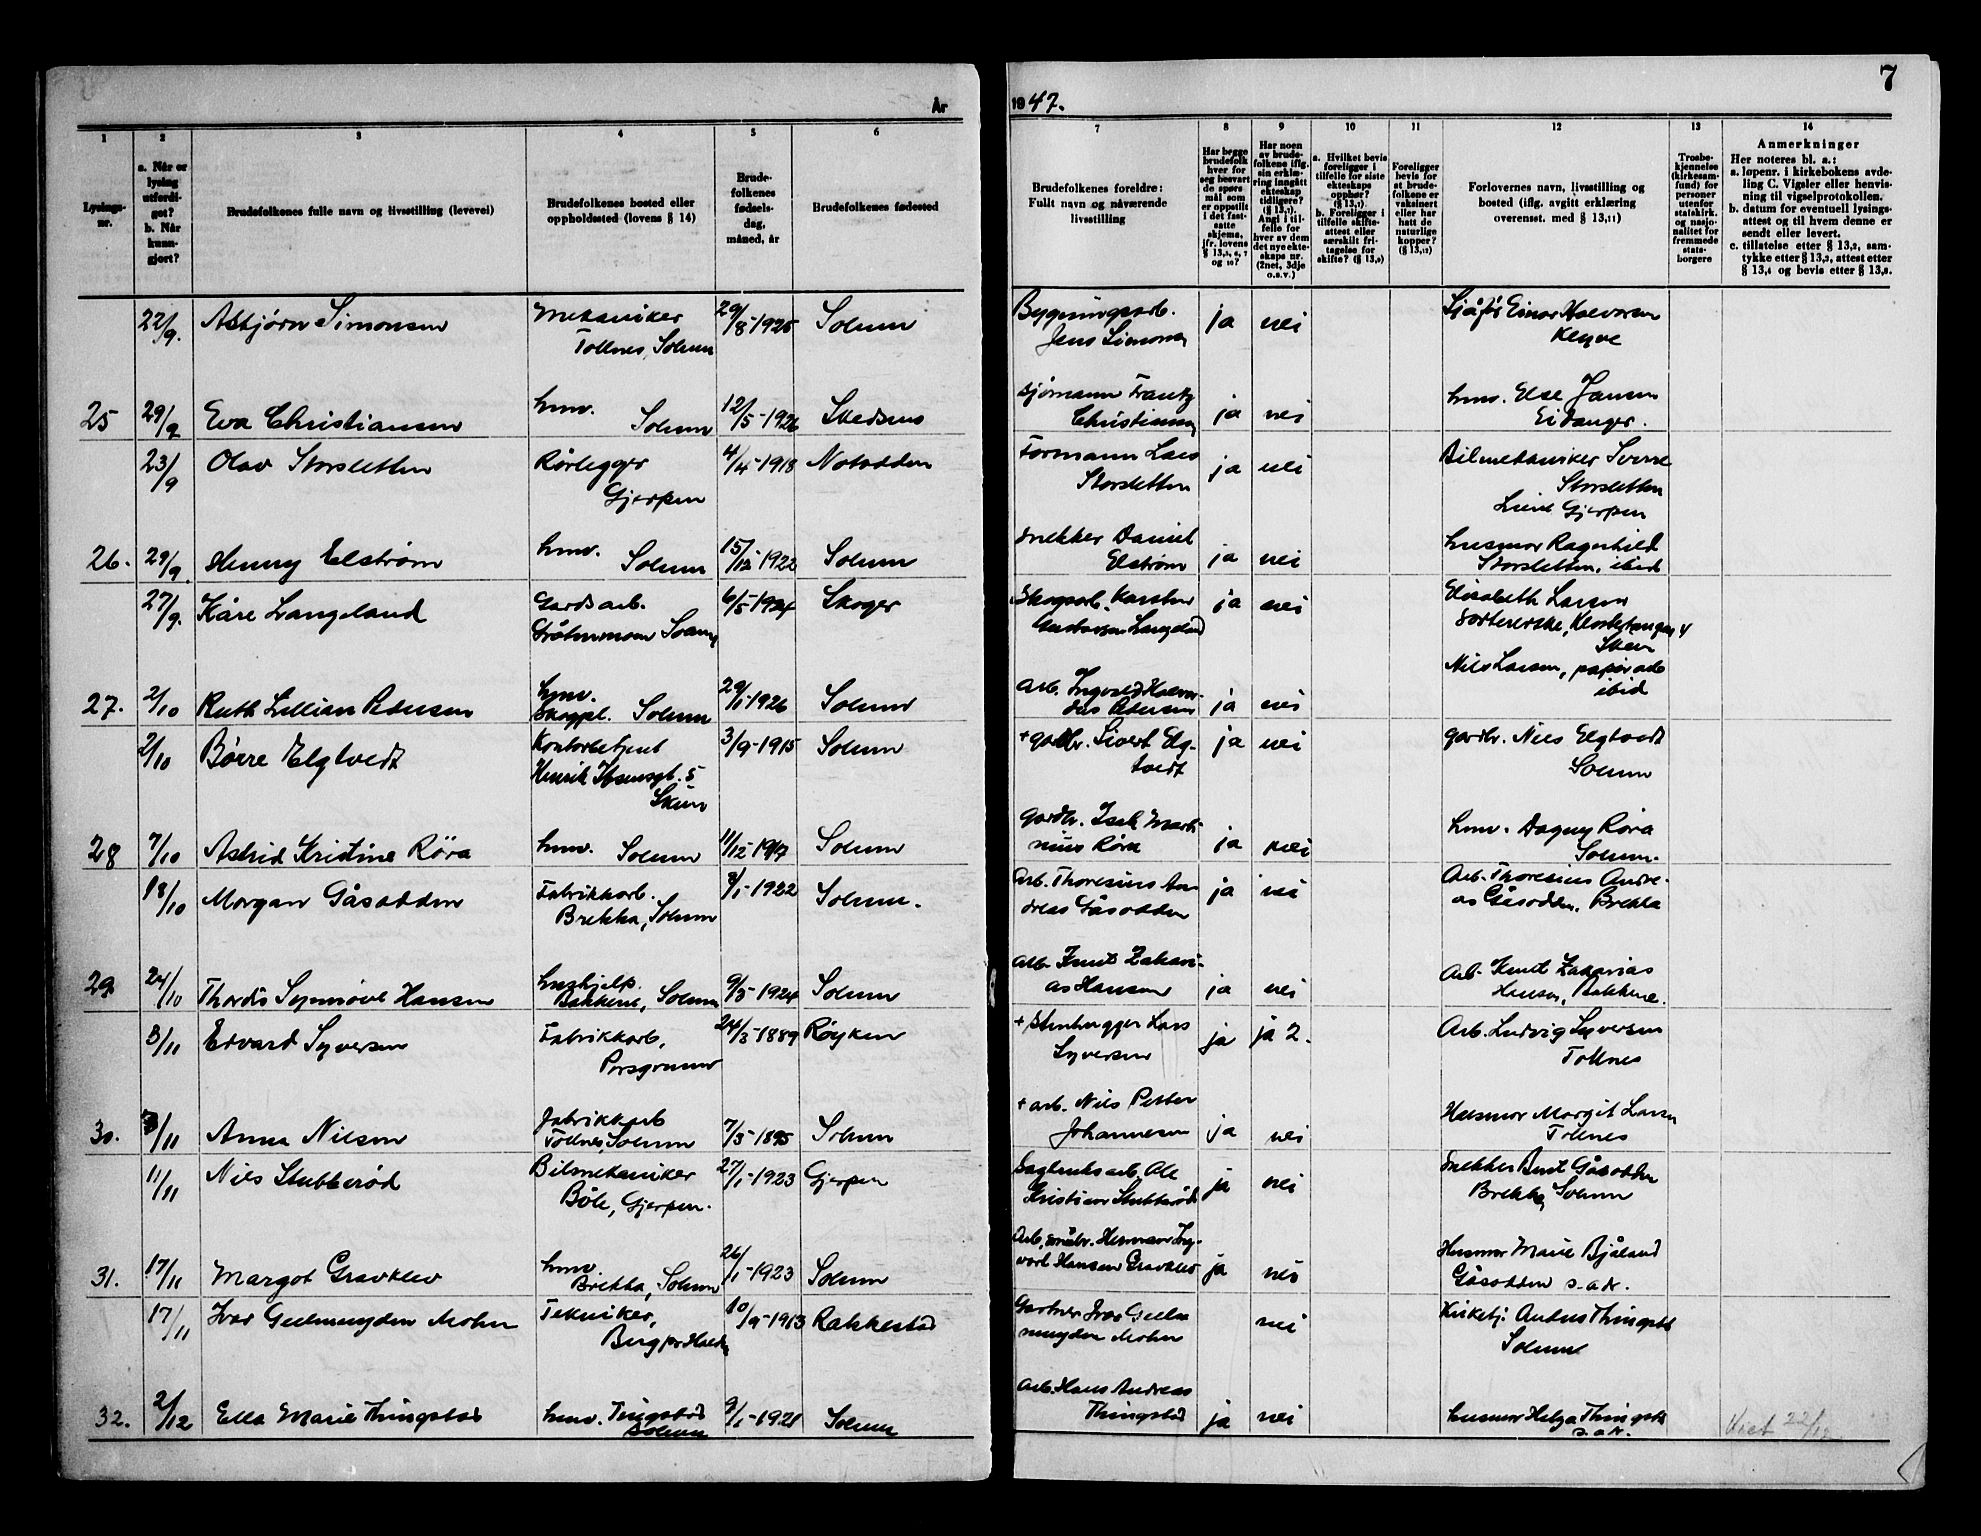 År
1947.
7
1 2 3 4 5 6 7 8 9 10 11 12 13 14
Lysings-
nr.
a. Når er
lysing
utferdi-
get?
b. Når
kunn-
gjort?
Brudefolkenes fulle navn og livsstilling (levevei)
Brudefolkenes bosted eller
oppholdssted (lovens § 14)
Brude-
folkenes
fødsels-
dag,
måned, år
Brudefolkenes fødested
Brudefolkenes foreldre:
Fullt navn og nåværende
livsstilling
Har begge
brudefolk
hver for
seg besvart
de spørs-
mål som
er oppstilt
i det fast-
satte
skjema,
Har noen
av brude-
folkene iflg.
sin erklæ-
ring inngått
ekteskap
tidligere?
(§ 13,1).
Angi i til-
felle for
hver av dem
det nye ekte-
skaps nr.
(2net, 3dje
o.s.v.)
a. Hvilket bevis
foreligger i
tilfelle for siste
ekteskaps
opphør?
(§ 13,7)
b. Foreligger i
tilfelle skifte-
attest eller
særskilt fri-
tagelse for
skifte?
Foreligger
bevis for
at brude-
folkene er
vaksinert
eller har
hatt de
naturlige
kopper?
Forlovernes navn, livsstilling og
bosted (iflg. avgitt erklæring
overensst. med § 13,11)
Trosbe-
kjennelse
(kirkesam-
fund) for
personer
utenfor
statskirk.
og nasjo-
nalitet for
fremmede
stats-
borgere
Anmerkninger
Her noteres bl. a.:
a. løpenr. i kirkebokens avde-
ling C. Vigsler eller henvis-
ning til vigselprotokollen.
b. datum for eventuell lysings-
attest og til hvem denne er
sendt eller levert.
c. tillatelse etter § 13,2, sam-
tykke etter § 13,3, attest etter
§ 13,4 og bevis etter § 13,8.
22/9. Asbjørn Simonsen Mekaniker 29/8-1925 Solum Bygningsarb. ja nei Sjåfør Einar Halvorsen
Tollnes, Solum Jens Simonsen Klyve
25 29/9 Eva Christiansen hmv. Solum 12/5-1926 Skedsmo Sjømann Frantz Christiansen ja nei hmv. Else Jansen
Eidanger.
23/9 Olav Storsletten Rørlegger 4/4-1918 Notodden Formann Lars ja nei Bilmekaniker Sverre
Gjerpen Storsletten Storsletten
Gjerpen
26. 29/9. Henny Elstrøm hmv. Solum 15/12-1922 Solum Snekker Daniel Elstrøm ja nei husmor Ragnhild
Storsletten, ibid
27/9. Kåre Langeland Gardsarb. 6/5-1924 Skoger Skogsarb. Karsten ja nei Elisabeth Larsen
Gustavsen Langeland sortererske, Klosterhaugen 4
Skien
Nils Larsen, papirarb
ibid
27. 2/10 Ruth Lillian Pedersen hmv. Skogpl. Solum 29/1-1926 Solum Arb. Ingvald Halvor- Pedersen ja nei
2/10 Børre Elgtvedt Kontorbetjent 3/9-1915 Solum + gardbr. Sivert Elg- ja nei gardbr. Nils Elgtvedt
Henrik Ibsensgt. 5 tvedt Solum
Skien
28 7/10 Astrid Kristine Røra hmv. Solum 11/12-1917 Solum gardbr. Isak Marti-
nius Røra ja nei hmv. Dagny Røra
Solum.
18/10 Morgan Gåsodden Fabrikkarb. 1922 Solum. Arb. Thoresius An- ja nei Arb. Thoresius Andre-
Brekka, Solum dreas Gåsodden as Gåsodden, Brekka
29 24/10 Thordis Synnøve Hansen hushjelp. Bakkene, Solum 9/5-1924 Solum Arb. Knut Zakari-
as Hansen ja nei Arb. Knut Zakarias
Hansen, Bakkene.
3/11 Edvard Syversen Fabrikkarb, 24/3-1889 Røyken + Stenhugger Lars ja ja 2. Arb. Ludvig Syversen
Porsgrunn Syversen Tollnes
30. 3/11 Anna Nilsen Fabrikkarb Tollnes, Solum 7/5-1895 Solum + arb. Nils Petter
Johannesen ja nei Husmor Margit Larsen
Tollnes
11/11 Nils Stubberød Bilmekaniker 27/1-1923 Gjerpen Sagbruksarb. Ole ja nei Snekker Bent Gåsodden
Bøle, Gjerpen. Kristian Stubberød Brekka, Solum
31. 17/11 Margot Gravklev hmv. Brekka, Solum 26/1-1923 Solum Arb, småbr. Herman Ing-
vart Hansen Gravklev ja nei Husmor Marie Bjåland
Gåsodden s.a.n.
17/11 Ivar Guldmunden Mohn Tekniker, 10/9-1913 Rakkestad Gartner Ivar nei Kirketj. Anders Thingstad
Berg pr Halden Mohn Solum
32. 2/12 Ella Marie Thingstad hmv. Tingstad Solum 9/1-1921 Solum Arb. Hans Andreas
Thingstad ja nei husmor Helga Thingstad
s.a.n. Viet 22/12